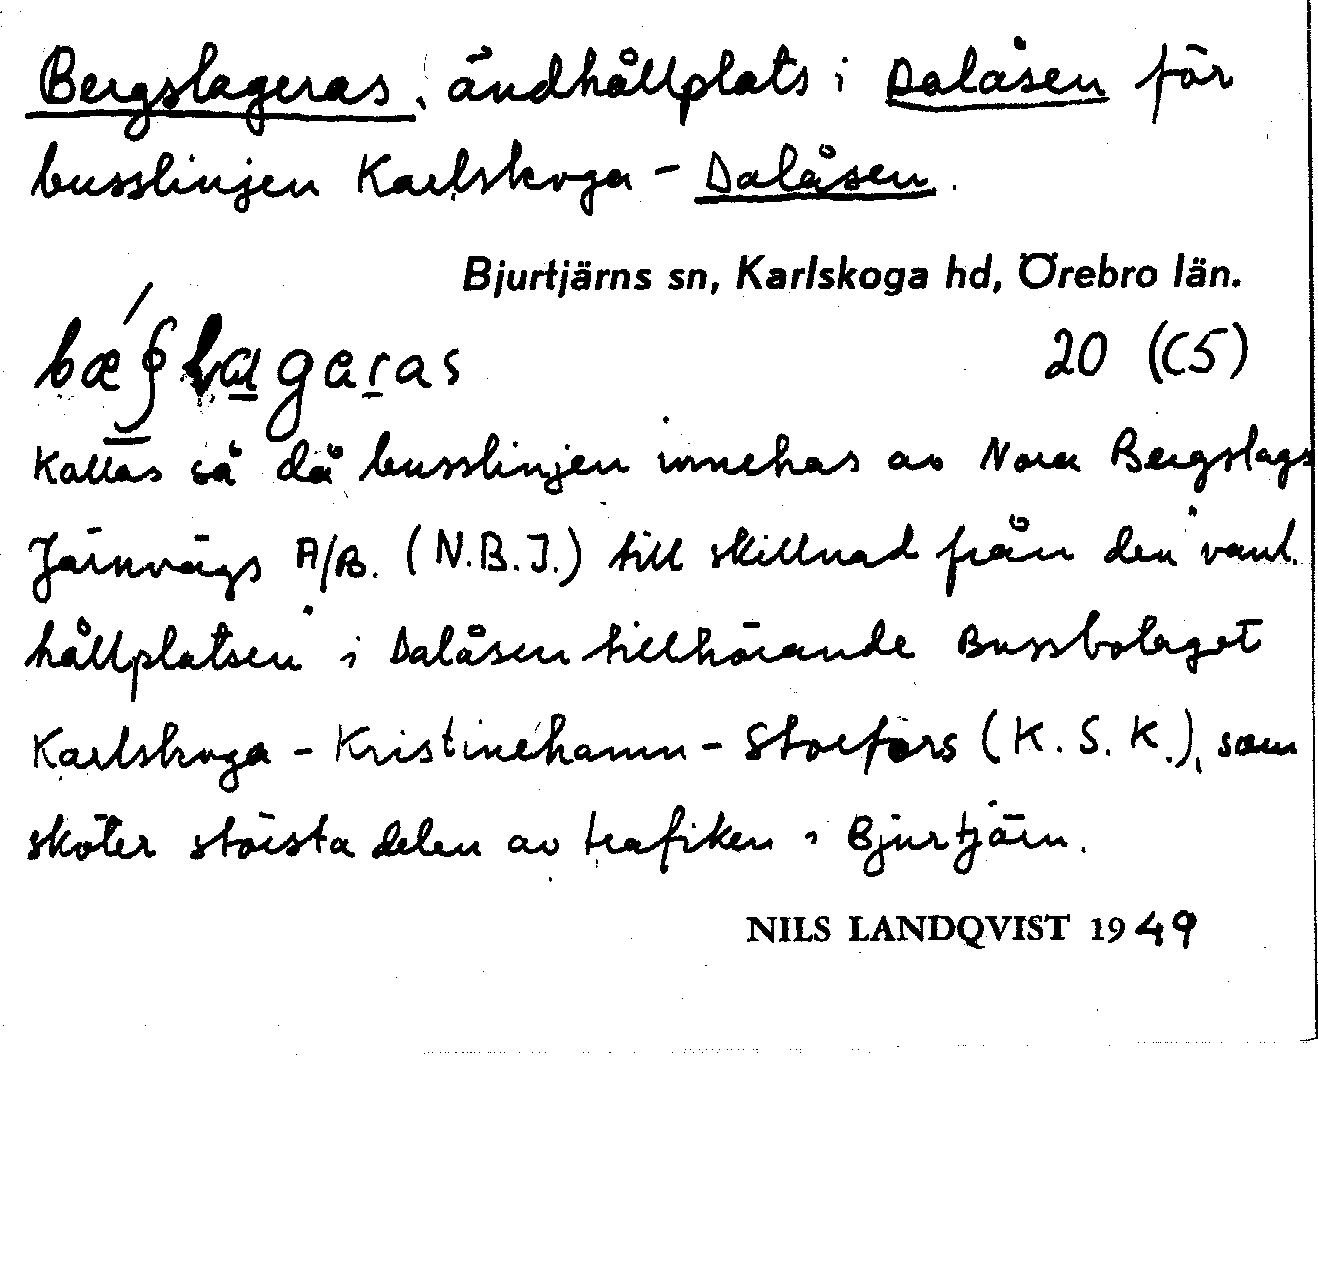 Bergslageras, ändhållplats i Dalåsen för
busslinjen Karlskoga - Dalåsen.
Bjurtjärns sn, Karlskoga hd, Örebro län.
20 (C5)
Kallas så då busslinjen innehas av Nora Bergslags
Järnvägs A/B. (N.B.J.) till skillnad från den vanl.
hållplatsen i Dalåsen tillhörande Bussbolaget
Karlskoga - Kristinehamn - Storfors (K.S.K.), som
sköter största delen av trafiken i Bjurtjärn.
NILS LANDQVIST 1949